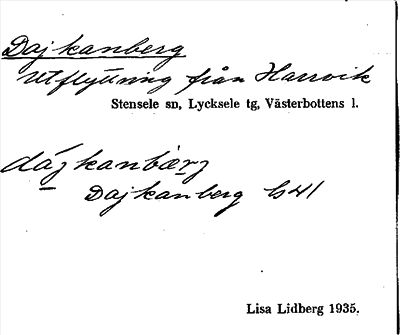 Dajkanberg
Utflyttning från Harrvik
Stensele sn, Lycksele tg, Västerbottens l.
dájkanbærj
Dajkanberg G41
Lisa Lidberg 1935.